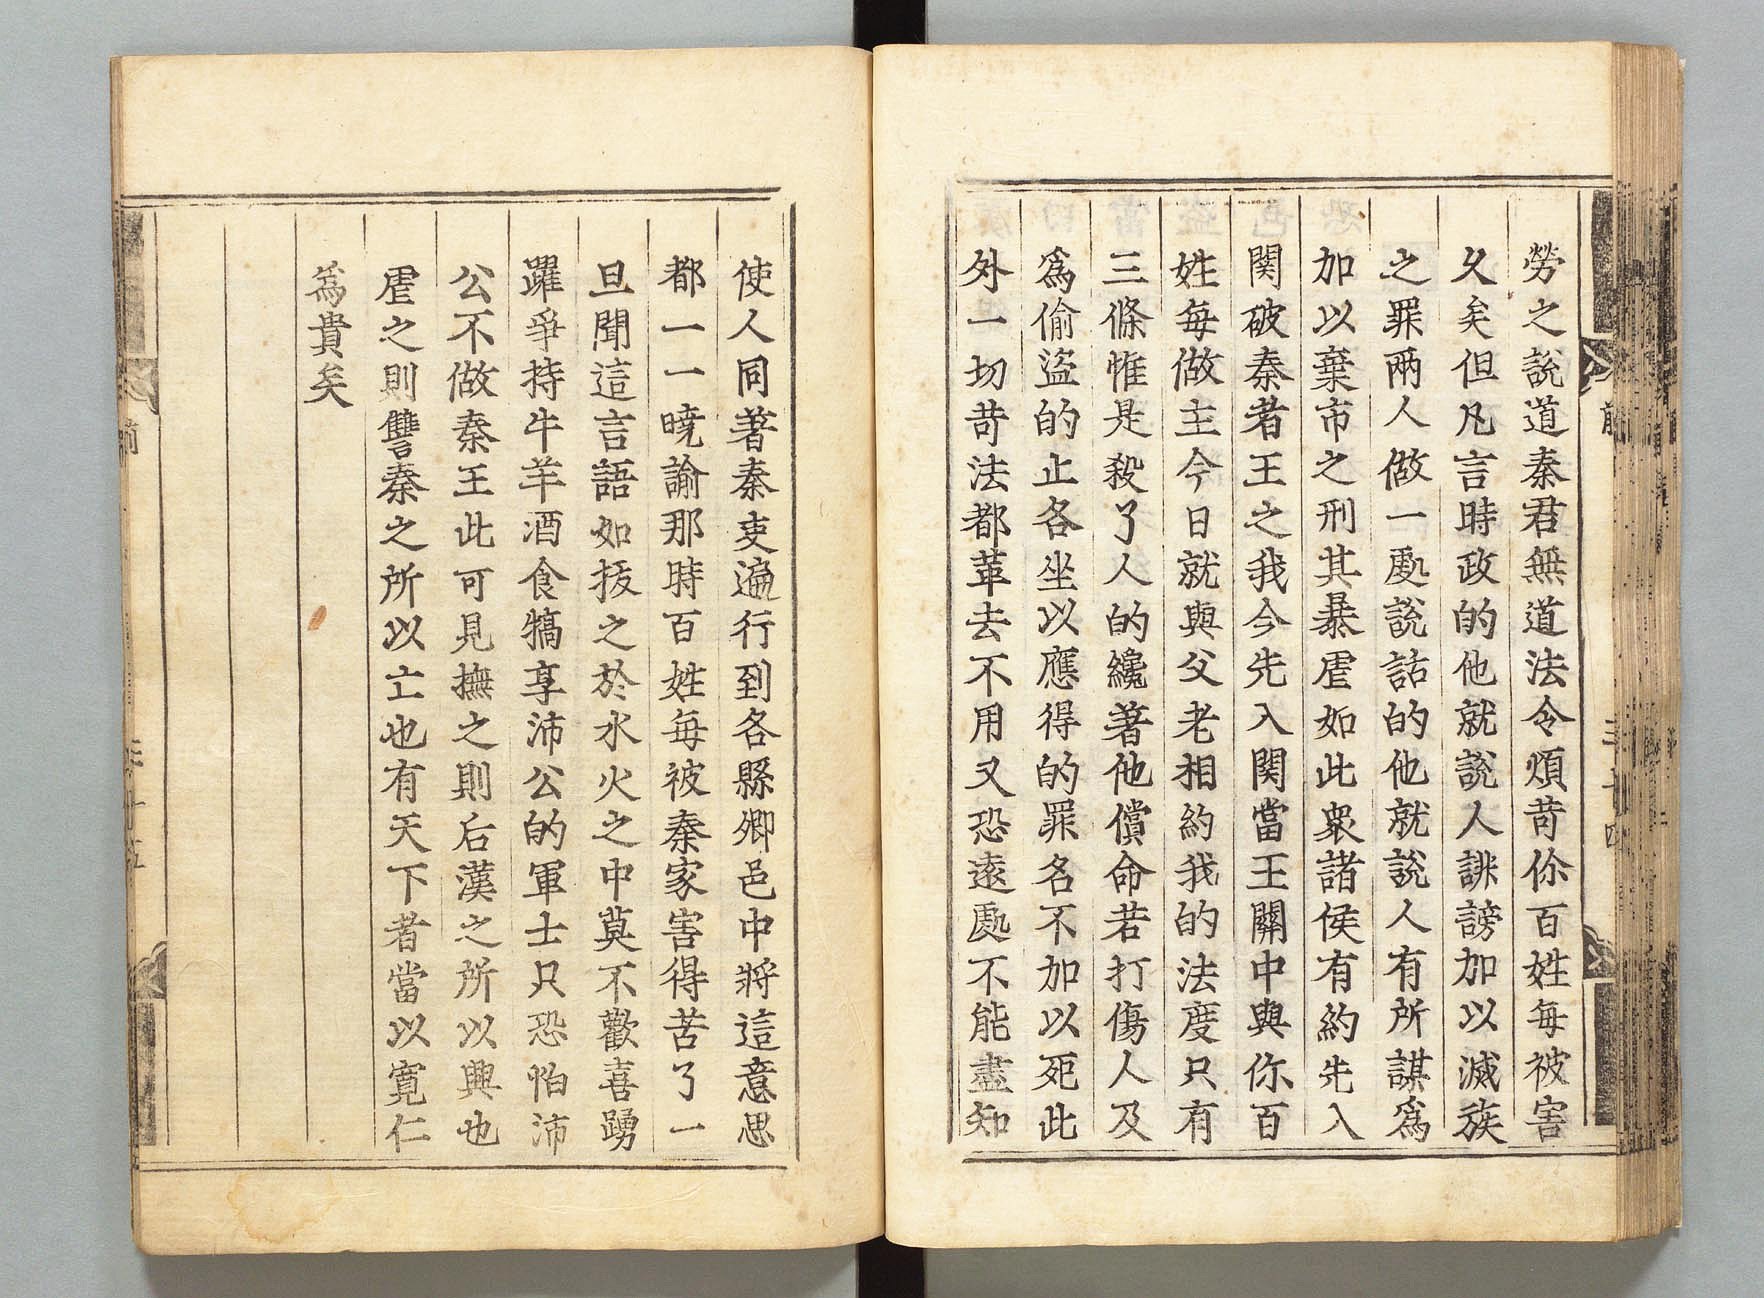 勞之說道秦君無道法令煩苛你百姓每被害
乆矣但凡言時政的他就說人誹謗加以滅族
之罪兩人做一處說話的他就說人有所謀爲
加以棄市之刑其暴虐如此衆諸侯有約先入
関破秦者王之我今先入関當王關中與你百
姓每做主今日就與父老相約我的法度只有
三條惟是殺了人的纔著他償命若打傷人及
爲偷盜的止各坐以應得的罪名不加以死此
外一切苛法都革去不用又恐遠處不能盡知
使人同著秦吏遍行到各縣鄉邑中將這意思
都一一曉諭那時百姓每被秦家害得苦了一
旦聞這言語如拔之於水火之中莫不歡喜踴
躍爭持牛羊酒食犒享沛公的軍士只恐怕沛
公不做秦王此可見撫之則后漢之所以興也
虐之則讐秦之所以亡也有天下者當以寬仁
爲貴矣